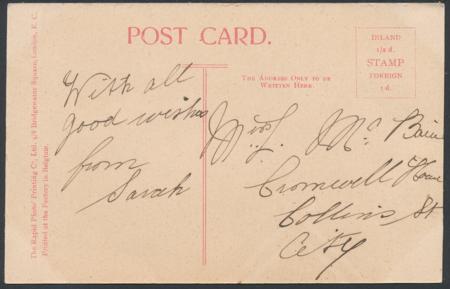 POST CARD.
INLAND
1/2 d.
STAMP
FOREIGN
1 d.
THE ADDRESS ONLY TO BE
WRITTEN HERE.
With all
good wishes
from
Sarah
Miss Mc
Cromwell
Collins St
City
The Rapid Photo Printing Co., Ltd. 4/8 Bridgewater Square, London, E. C.
Printed at the Factory in Belgium.